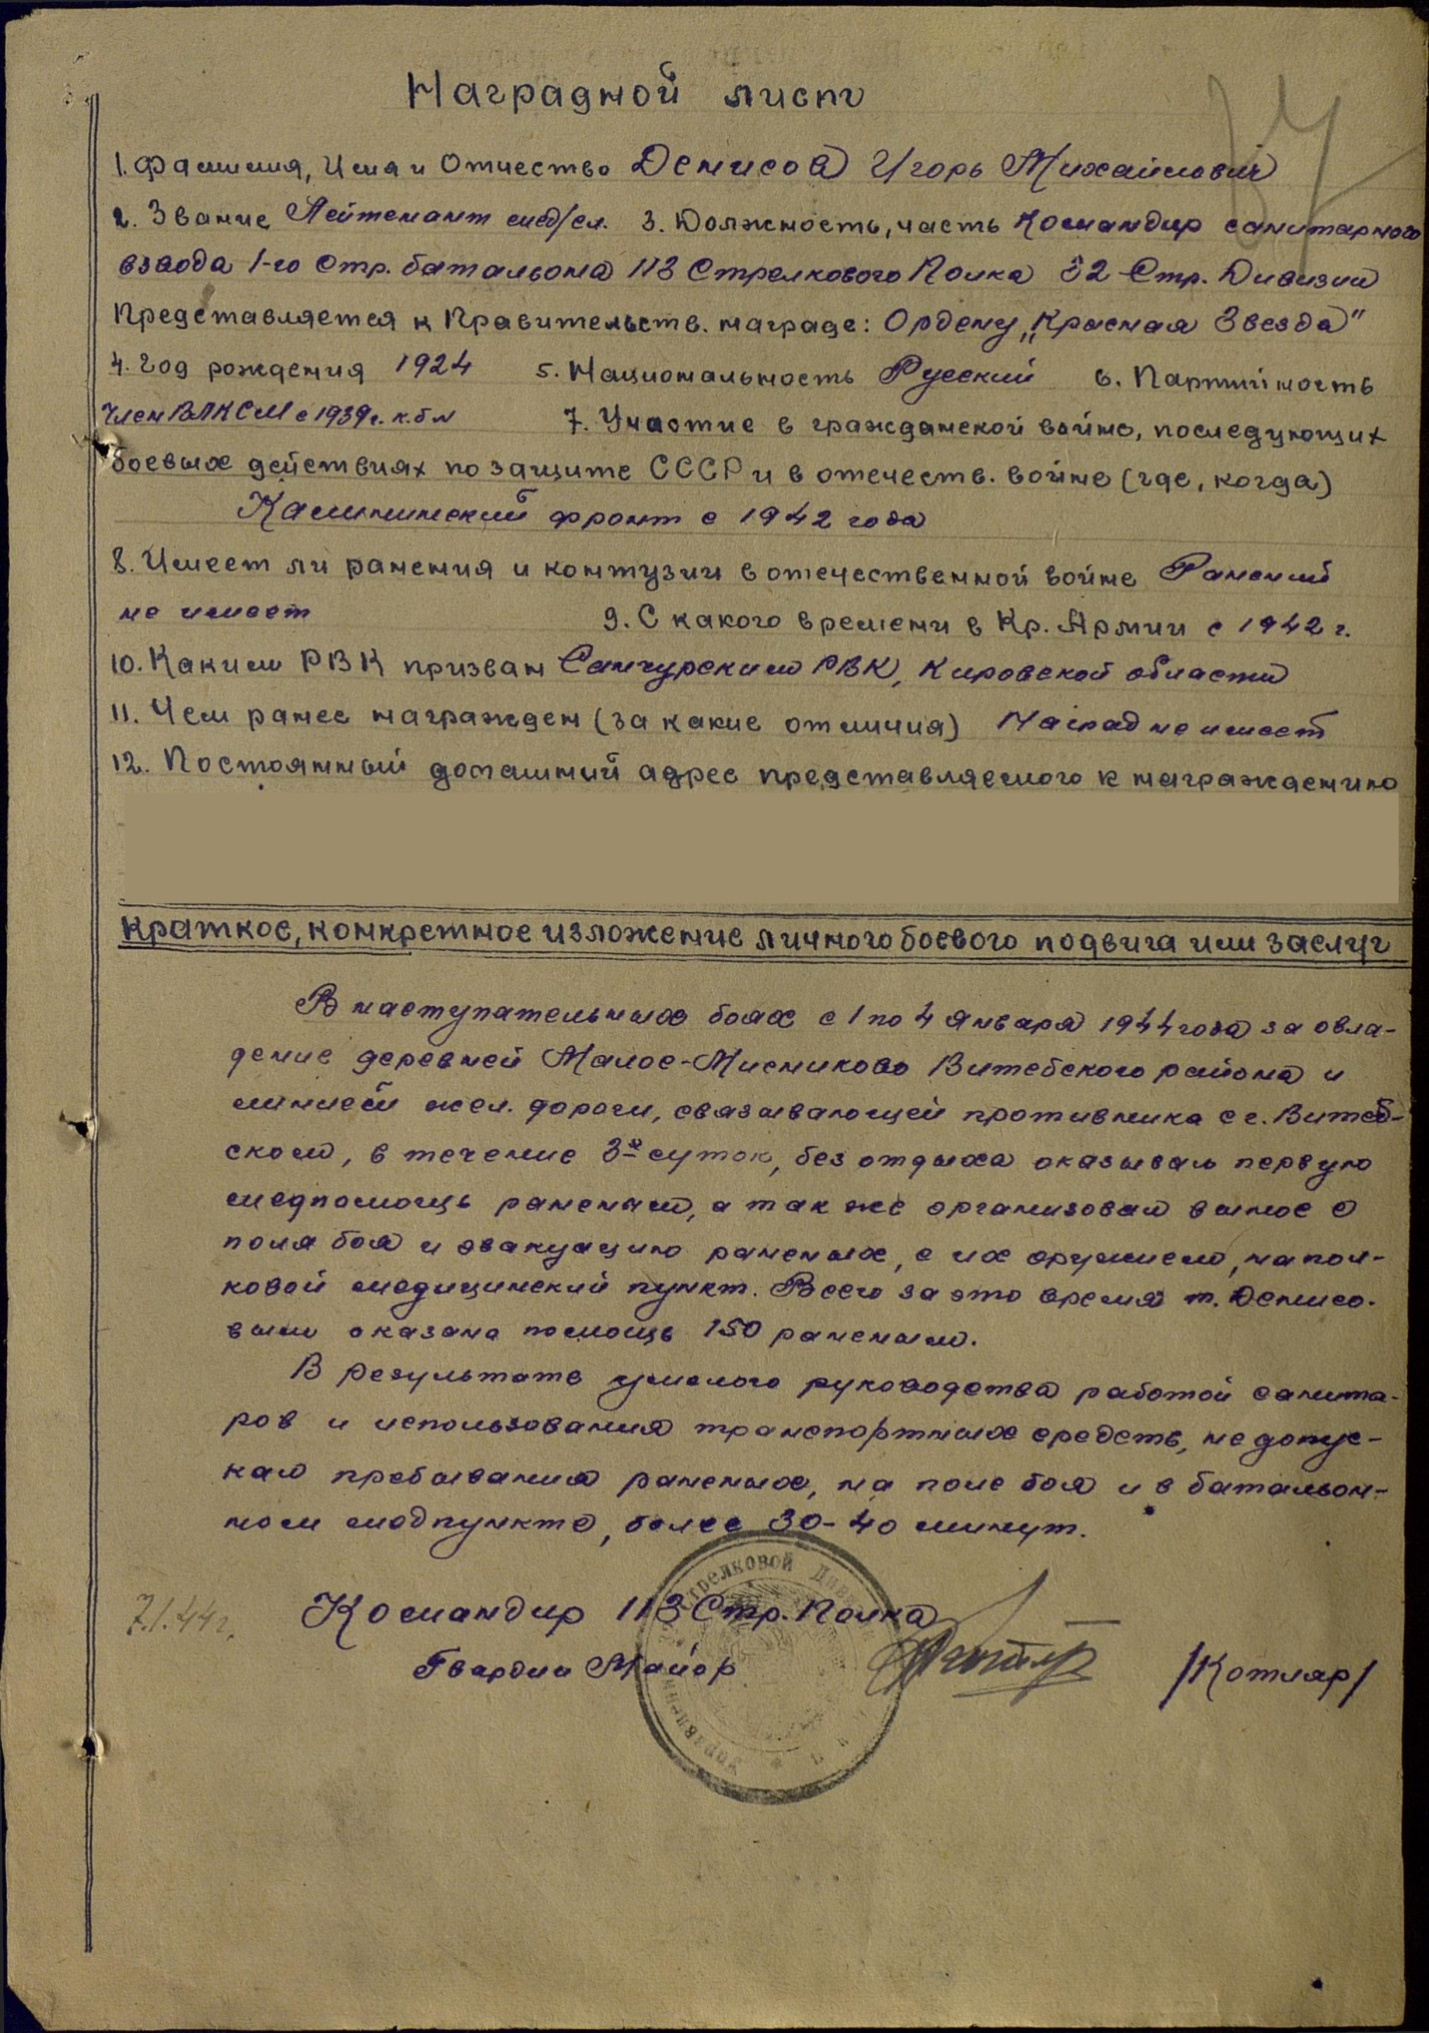 Наградной лист
1. Фамилия, Имя и Отчество Денисов Игорь Михайлович
2. Звание Лейтенант мед/сл. 3. Должность, часть Командир санитарного
взвода 1-го Стр. батальона 113 Стрелкового Полка 32 Стр. Дивизии
Представляется к Правительств. награде: Ордену „Красная Звезда"
4. Год рождения 1924 5. Национальность Русский 6. Партийность
Член ВЛКСМ с 1939 г. к.б № 7. Участие в гражданской войне, последующих
боевых действиях по защите СССР и в отечеств. войне (где, когда)
Калининский фронт с 1942 года
8. Имеет ли ранения и контузии в отечественной войне Ранений
не имеет 9. С какого времени в Кр. Армии с 1942 г.
10. Каким РВК призван Санчурским РВК, Кировской области
11. Чем ранее награжден (за какие отличия) Наград не имеет
12. Постоянный домашний адрес представляемого к награждению
краткое, конкретное изложение личного боевого подвига или заслуг
В наступательных боях с 1 по 4 января 1944 года за овла-
дение деревней Малое-Мисниково Витебского района и
линией жел. дороги, связывающей противника с г. Витеб-
ском, в течение 3х суток, без отдыха оказывал первую
медпомощь раненым, а так же организовал вынос с
поля боя и эвакуацию раненых, с их оружием, на пол-
ковой медицинский пункт. Всего за это время т. Денисо-
вым оказана помощь 150 раненым.
В результате умелого руководства работой санита-
ров и использования транспортных средств, не допус-
кал пребывания раненых, на поле боя и в батальон-
ном медпункте, более 30-40 минут.
7.1.44 г.
Командир 113 Стр. Полка
Гвардии Майор /Котляр/
Стрелковой Дивизии
Управление